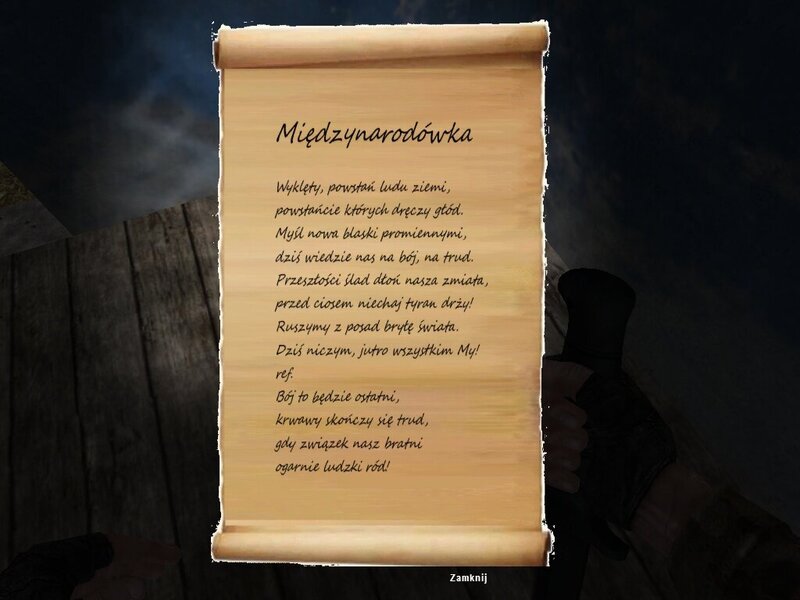 Międzynarodówka
Wyklęty, powstań ludu ziemi,
powstańcie których dręczy głód.
Myśl nowa blaski promiennymi,
dziś wiedzie nas na bój, na trud.
Przeszłości ślad dłoń nasza zmiata,
przed ciosem niechaj tyran drży!
Ruszymy z posad bryłę świata.
Dziś niczym, jutro wszystkim My!
ref.
Bój to będzie ostatni,
krwawy skończy się trud,
gdy związek nasz bratni
ogarnie ludzki ród!
Zamknij